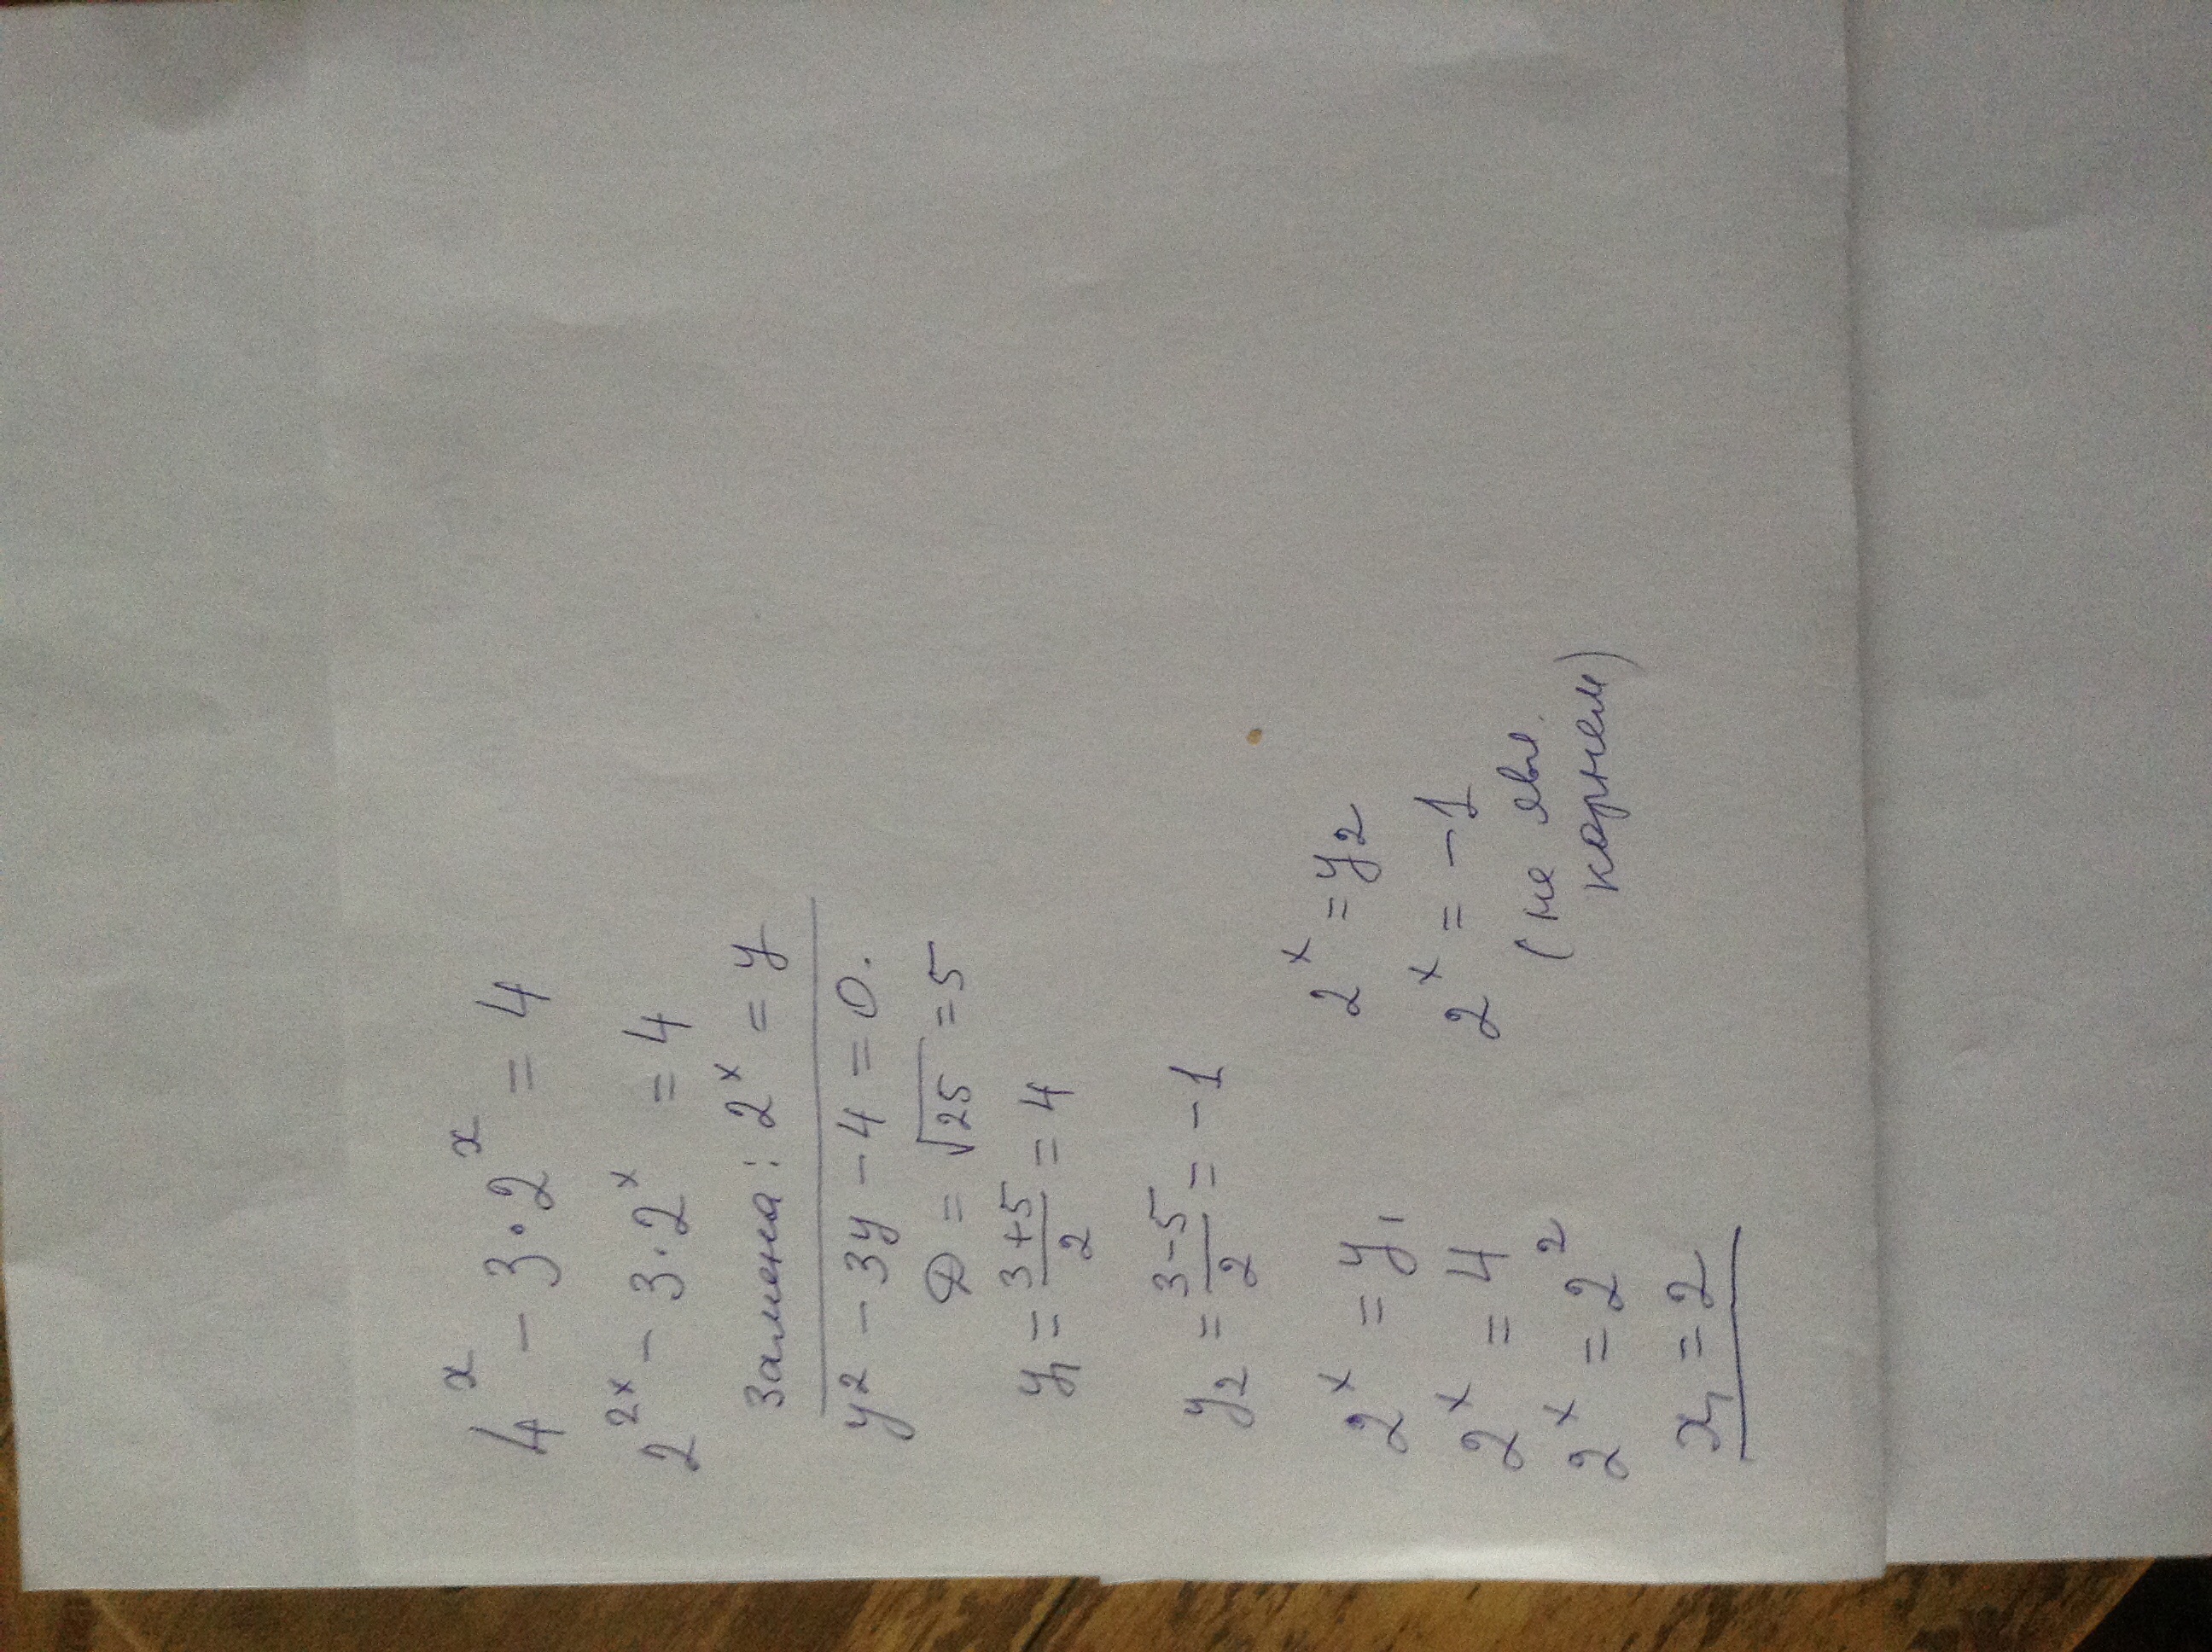 4^x - 3·2^x = 4
2^2x - 3·2^x = 4
Замена: 2^x = y
y² - 3y - 4 = 0.
D = √25 = 5
y₁ = (3+5)/2 = 4
y₂ = (3-5)/2 = -1
2^x = y₁
2^x = 4
2^x = 2²
x₁ = 2
2^x = y₂
2^x = -1
(не явл.
корнем)